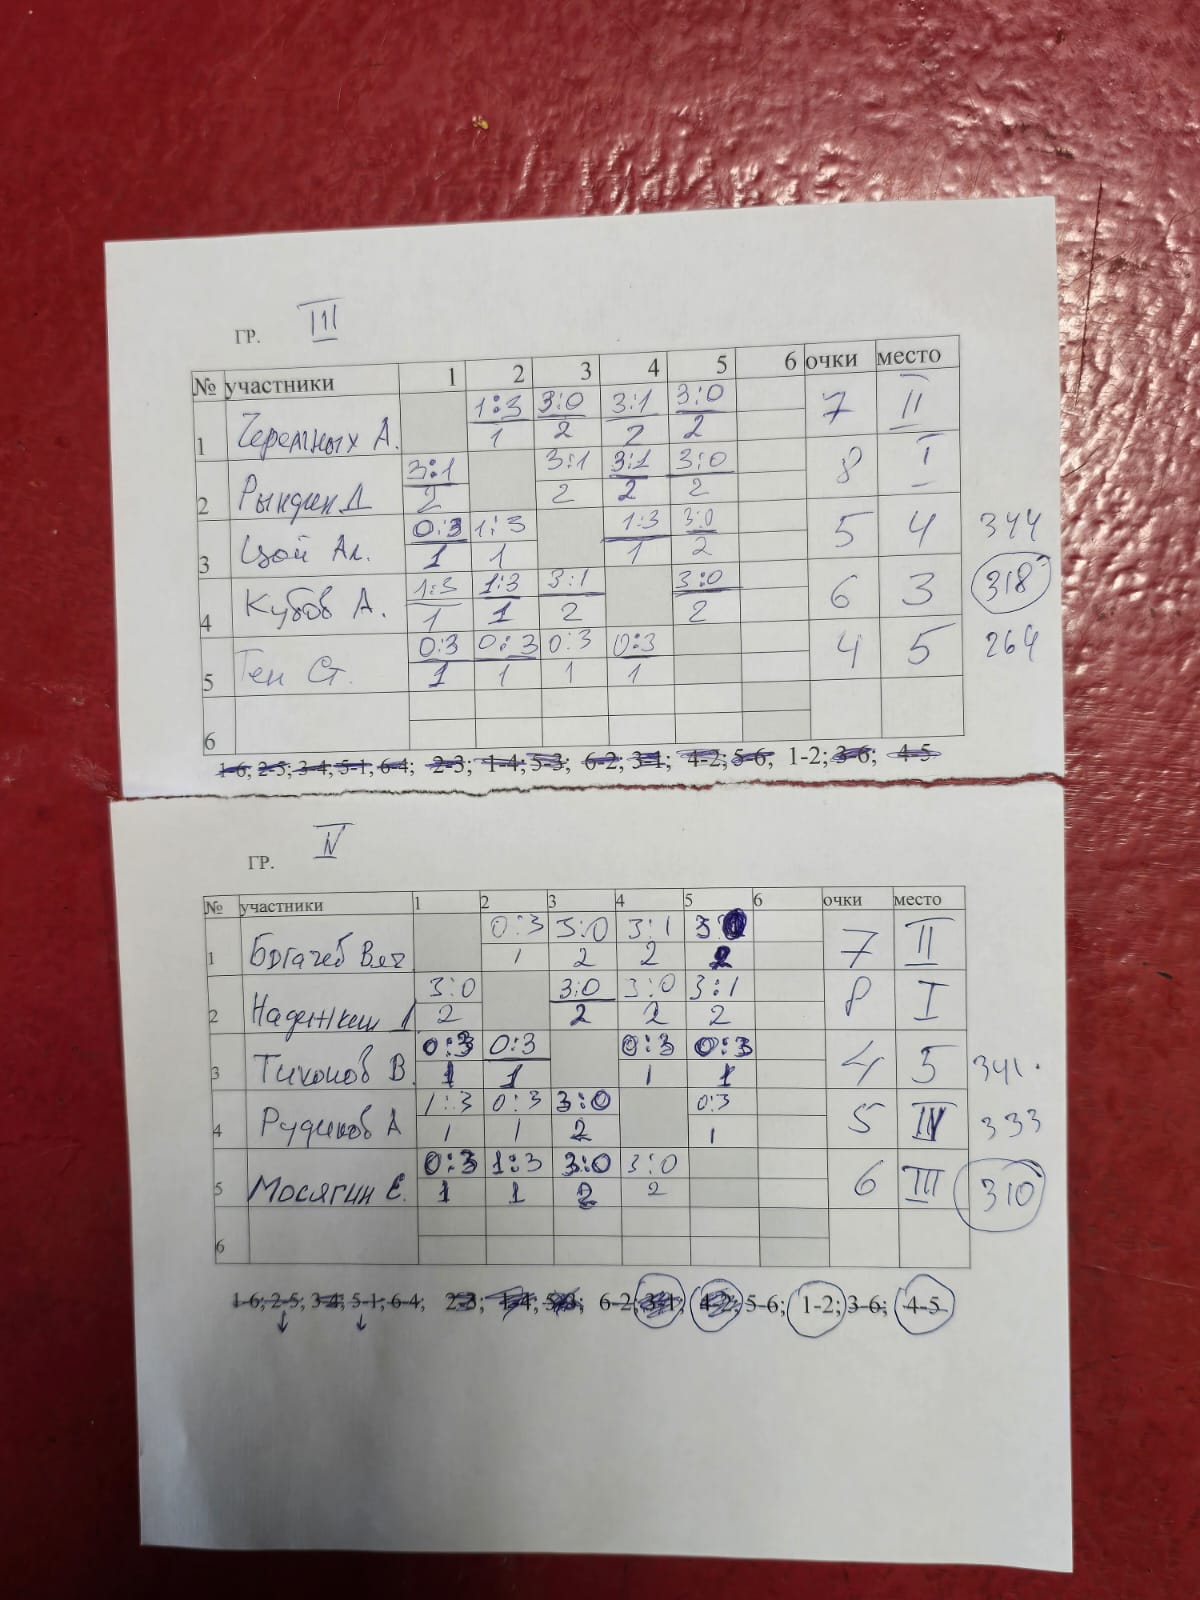 ГР. III
№ участники 1 2 3 4 5 6 очки место
1 Черемных А. 1:3 3:0 3:1 3:0 7 II
1 2 2 2
2 Рындин Д 3:1 3:1 3:1 3:0 8 I
2 2 2 2
3 Цой Ал. 0:3 1:3 1:3 3:0 5 4 344
1 1 1 2
4 Кубов А. 1:3 1:3 3:1 3:0 6 3 318
1 1 2 2
5 Тен Ст. 0:3 0:3 0:3 0:3 4 5 264
1 1 1 1
6
1-6; 2-5; 3-4; 5-1; 6-4; 2-3; 1-4; 5-3; 6-2; 3-1; 4-2; 5-6; 1-2; 3-6; 4-5
ГР. IV
№ участники 1 2 3 4 5 6 очки место
1 Богачев Вяч 0:3 3:0 3:1 3:0 7 II
1 2 2 2
2 3:0 3:0 3:0 3:1 8 I
2 2 2 2
3 Тихонов В. 0:3 0:3 0:3 0:3 4 5 341.
1 1 1 1
4 Рудиков А 1:3 0:3 3:0 0:3 5 IV 333
1 1 2 1
5 Мосягин Е. 0:3 1:3 3:0 3:0 6 III 310
1 1 2 2
6
1-6; 2-5; 3-4; 5-1; 6-4; 2-3; 1-4; 5-3; 6-2; 3-1; 4-2; 5-6; 1-2; 3-6; 4-5